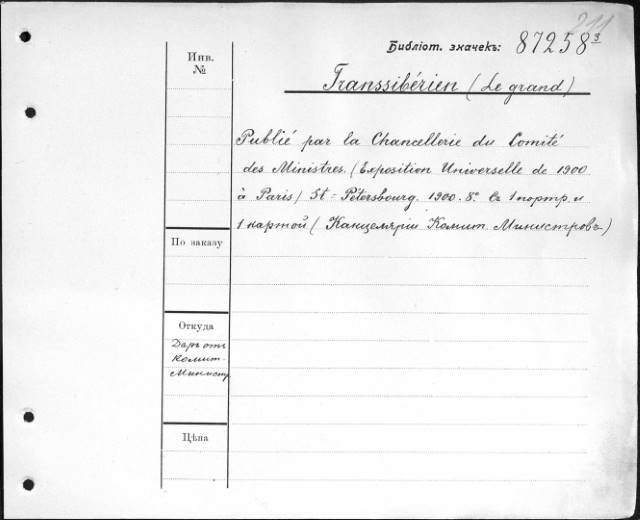 211
Библіот. значекъ: 87258³
Инв.
№
Transsibérien (Le grand)
Publié par la Chancellerie du Comité
des Ministres. (Exposition Universelle de 1900
à Paris) St=Pétersbourg. 1900. 8°. Съ 1 портр. и
1 картой (Канцелярiи Комит. Министровъ)
По заказу
Откуда
Даръ отъ
Комит.
Министр.
Цѣна